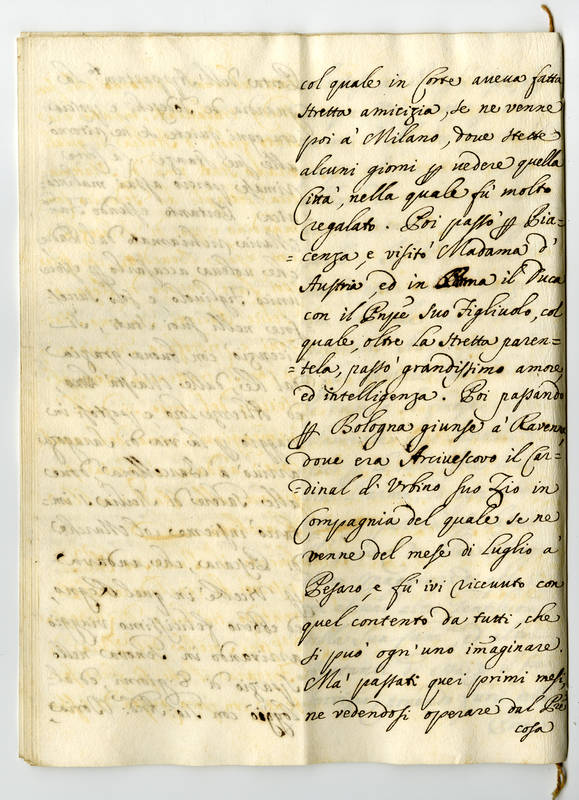 col quale in Corte aueua fatta
stretta amicizia, se ne venne
poi à Milano, doue stette
alcuni giorni ꝑ uedere quella
Città, nella quale fù molto
regalato. Poi passò ꝑ Pia=
=cenza, e visitò Madama d'
Austria, ed in il Duca
con il Pnpe suo Figliuolo, col
quale, oltre la stretta paren=
=tela, passò grandissimo amore,
ed intelligenza. Poi passando
ꝑ Bologna giunse à Ravenna
doue era Arciuescouo il Car=
=dinal d'Urbino suo Zio in
Compagnia del quale se ne
venne del mese di Luglio à
Pesaro, e fù iui riceuuto con
quel contento da tutti, che
si può ogn'uno imaginare.
Mà passati quei primi mesi,
ne vedendosi operare dal Pre
cosa